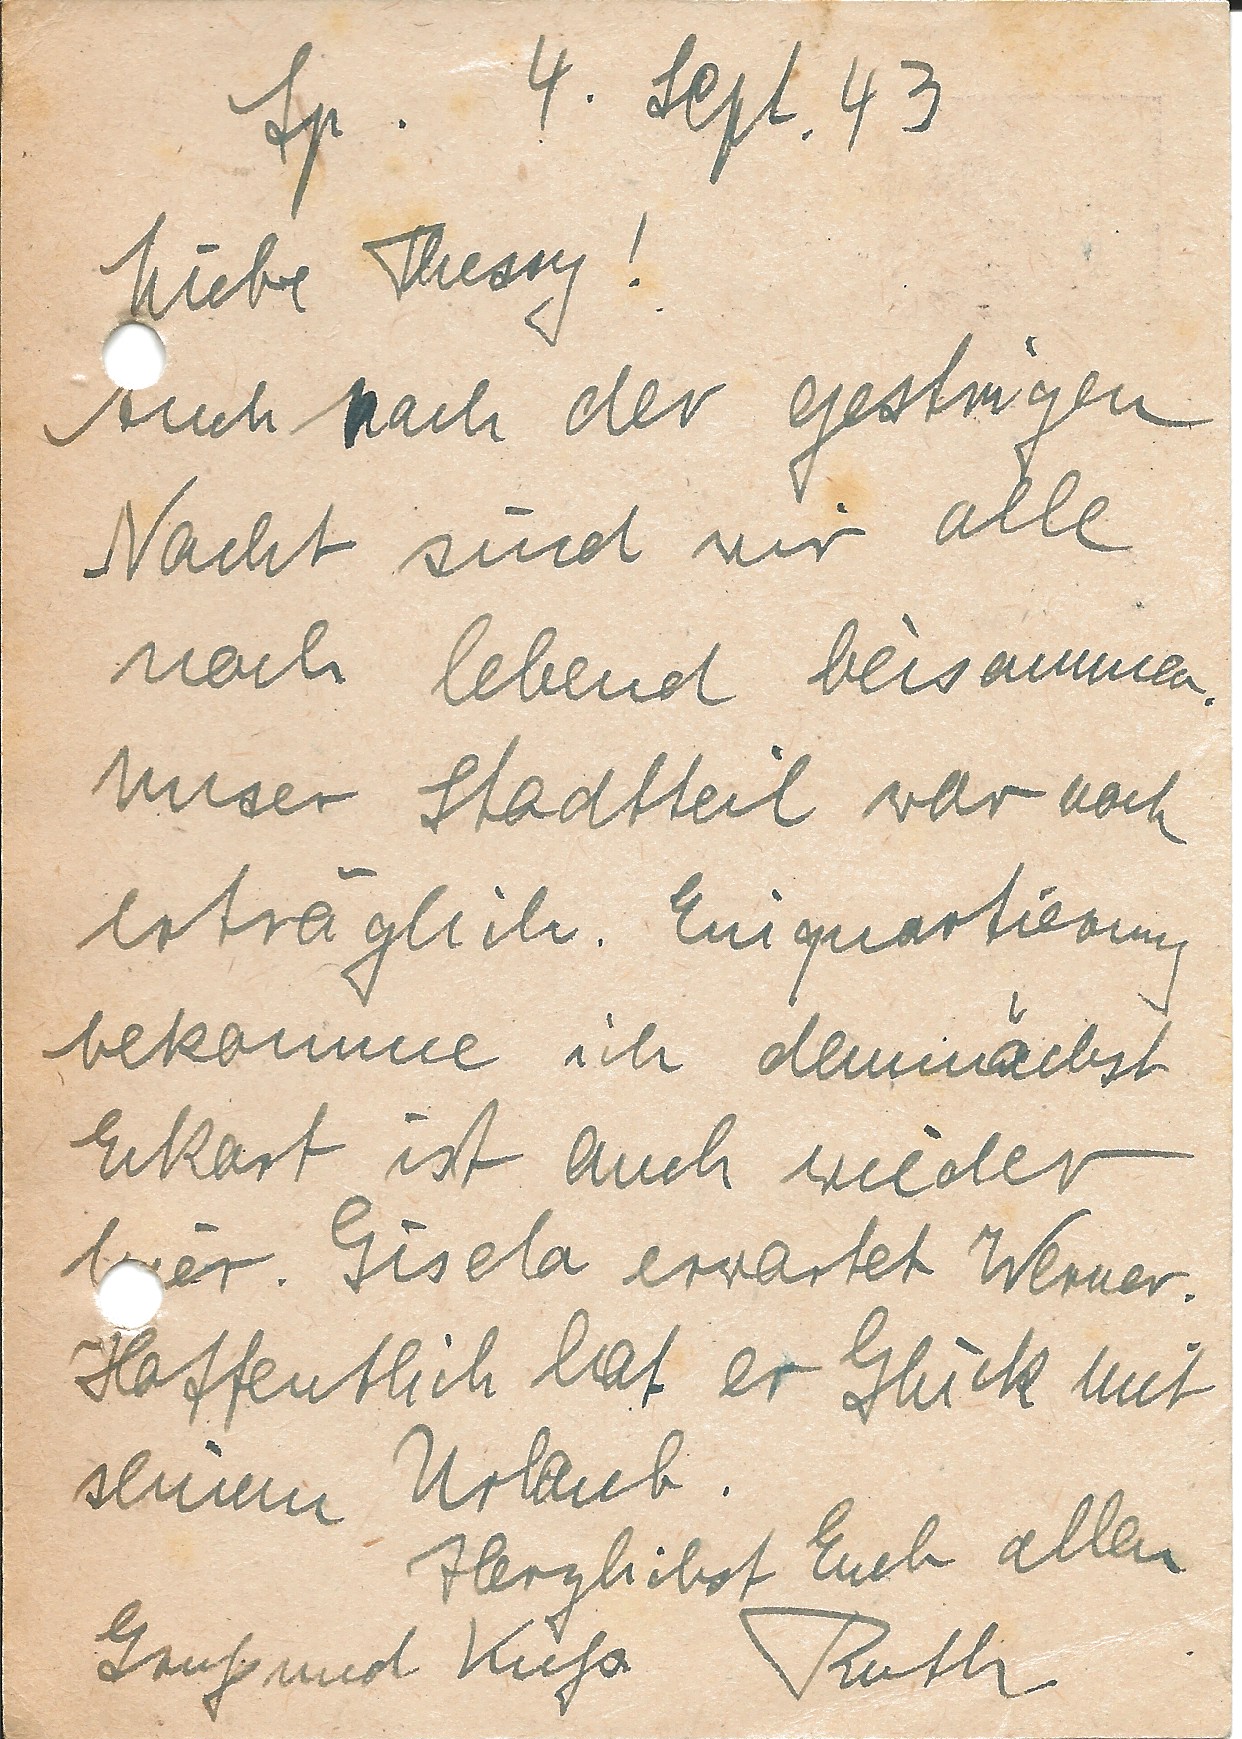 Sp. 4. Sept. 43
Liebe Thessy!
Auch nach der gestrigen
Nacht sind wir alle
noch lebend beisammen.
Unser Stadtteil war noch
erträglich. Einquartierung
bekomme ich demnächst
Eckart ist auch wieder
hier. Gisela erwartet Werner.
Hoffentlich hat er Glück mit
seinem Urlaub.
Herzlichst Euch allen
Gruß und Kuß Ruth.